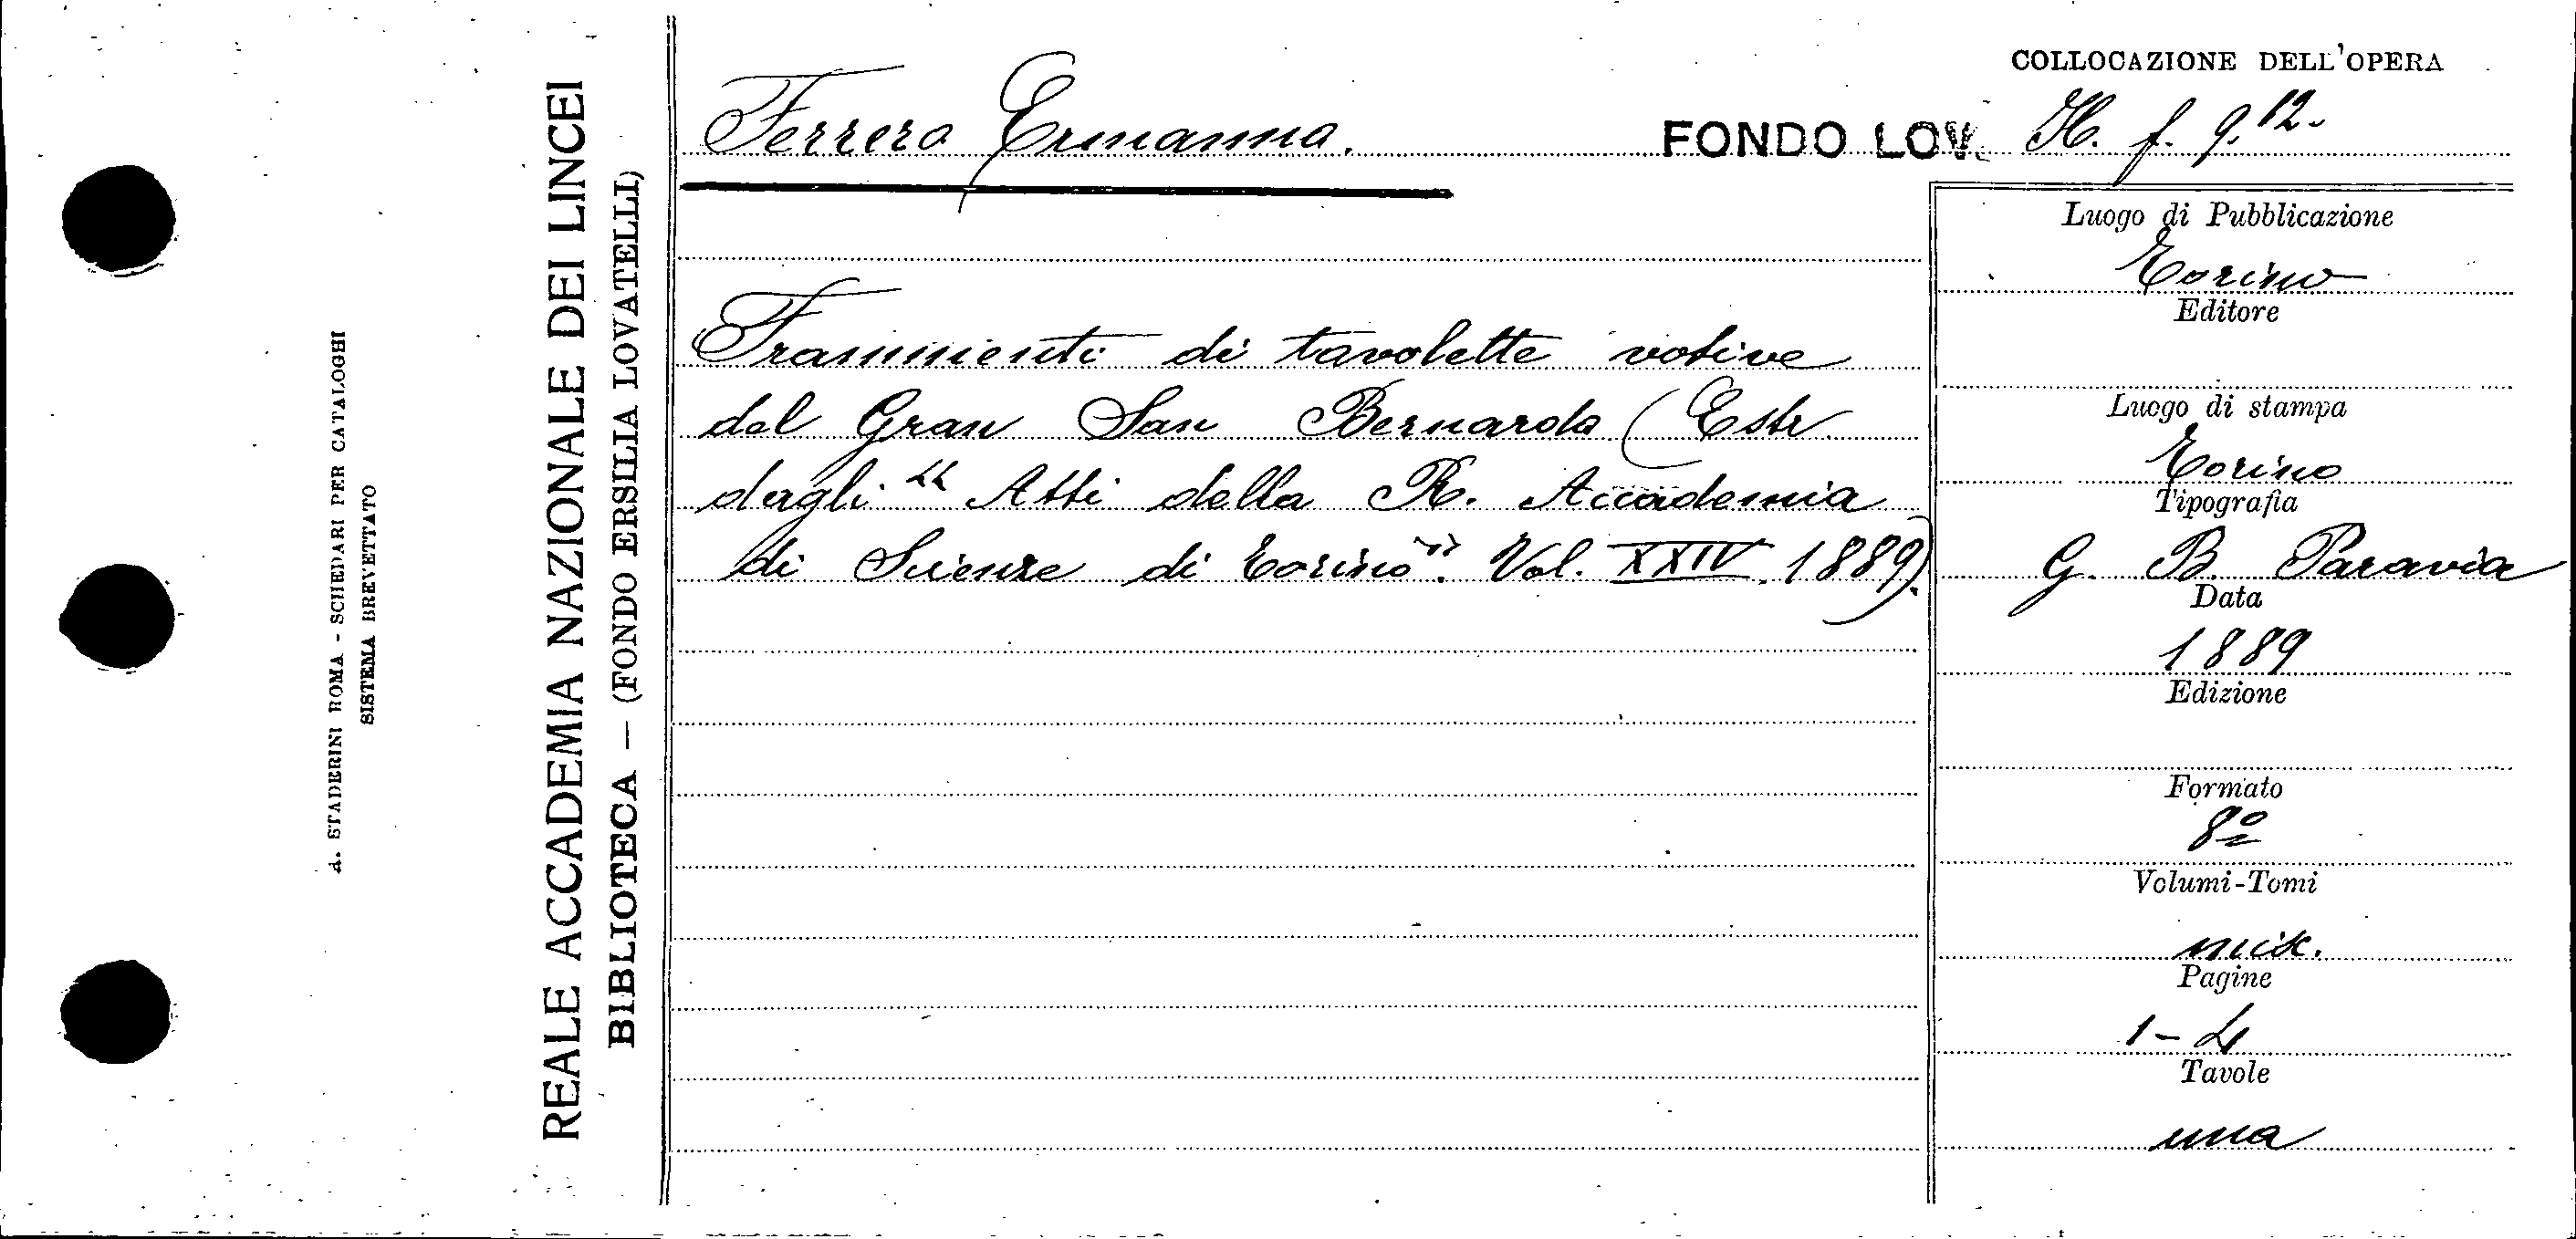 COLLOCAZIONE DELL'OPERA
Ferrero Ermanna.
FONDO LOV. H. f. 9.12.
Frammenti di tavolette votive
del Gran San Bernardo (Estr.
dagli "Atti della R. Accademia
di Scienze di Torino". Vol. XXIV. 1889).
Luogo di Pubblicazione
Torino
Editore
Luogo di stampa
Torino
Tipografia
G. B. Paravia
Data
1889
Edizione
Formato
8º
Volumi-Tomi
misc.
Pagine
1-4
Tavole
una
REALE ACCADEMIA NAZIONALE DEI LINCEI
BIBLIOTECA — (FONDO ERSILIA LOVATELLI)
A. STADERINI ROMA - SCHEDARI PER CATALOGHI
SISTEMA BREVETTATO